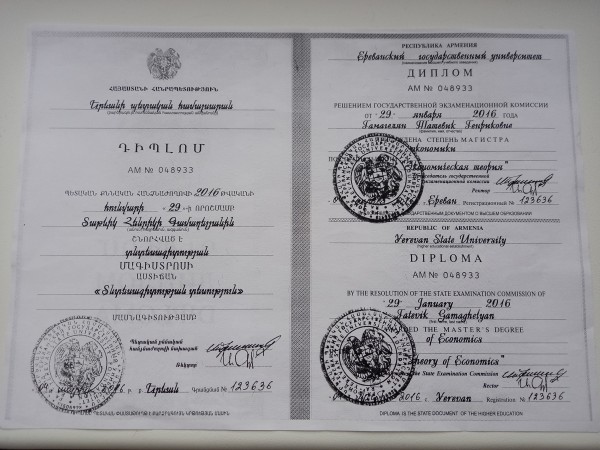 ՀԱՅԱՍՏԱՆԻ ՀԱՆՐԱՊԵՏՈՒԹՅՈՒՆ
Երևանի պետական համալսարան
ԴԻՊԼՈՄ
AM № 048933
ՊԵՏԱԿԱՆ ՔՆՆԱԿԱՆ ՀԱՆՁՆԱԺՈՂՈՎԻ 2016 ԹՎԱԿԱՆԻ
հունվարի 29 -ի ՈՐՈՇՄԱՄԲ
Տաթևիկ Հենրիկի Գամաղելյանին
ՇՆՈՐՀՎԱԾ Է
տնտեսագիտության
ՄԱԳԻՍՏՐՈՍԻ
ԱՍՏԻՃԱՆ
«Տնտեսագիտության տեսություն»
ՄԱՍՆԱԳԻՏՈՒԹՅԱՄԲ
Պետական քննական
հանձնաժողովի նախագահ
Ռեկտոր
2016 թ. ք. Երևան Գրանցման № 123636
РЕСПУБЛИКА АРМЕНИЯ
Ереванский государственный университет
ДИПЛОМ
AM № 048933
РЕШЕНИЕМ ГОСУДАРСТВЕННОЙ ЭКЗАМЕНАЦИОННОЙ КОМИССИИ
ОТ "29" января 2016 ГОДА
Гамагелян Татевик Генриковне
СТЕПЕНЬ МАГИСТРА
экономики
"Экономическая теория"
Председатель государственной
экзаменационной комиссии
Ректор
Ереван Регистрационный № 123636
ГОСУДАРСТВЕННЫМ ДОКУМЕНТОМ О ВЫСШЕМ ОБРАЗОВАНИИ
REPUBLIC OF ARMENIA
Yerevan State University
DIPLOMA
AM № 048933
BY THE RESOLUTION OF THE STATE EXAMINATION COMMISSION OF
29 January 2016
Tatevik Gamaghelyan
AWARDED THE MASTER'S DEGREE
of Economics
Theory of Economics"
the State Examination Commission
Rector
2016, Yerevan Registration № 123636
DIPLOMA IS THE STATE DOCUMENT OF THE HIGHER EDUCATION